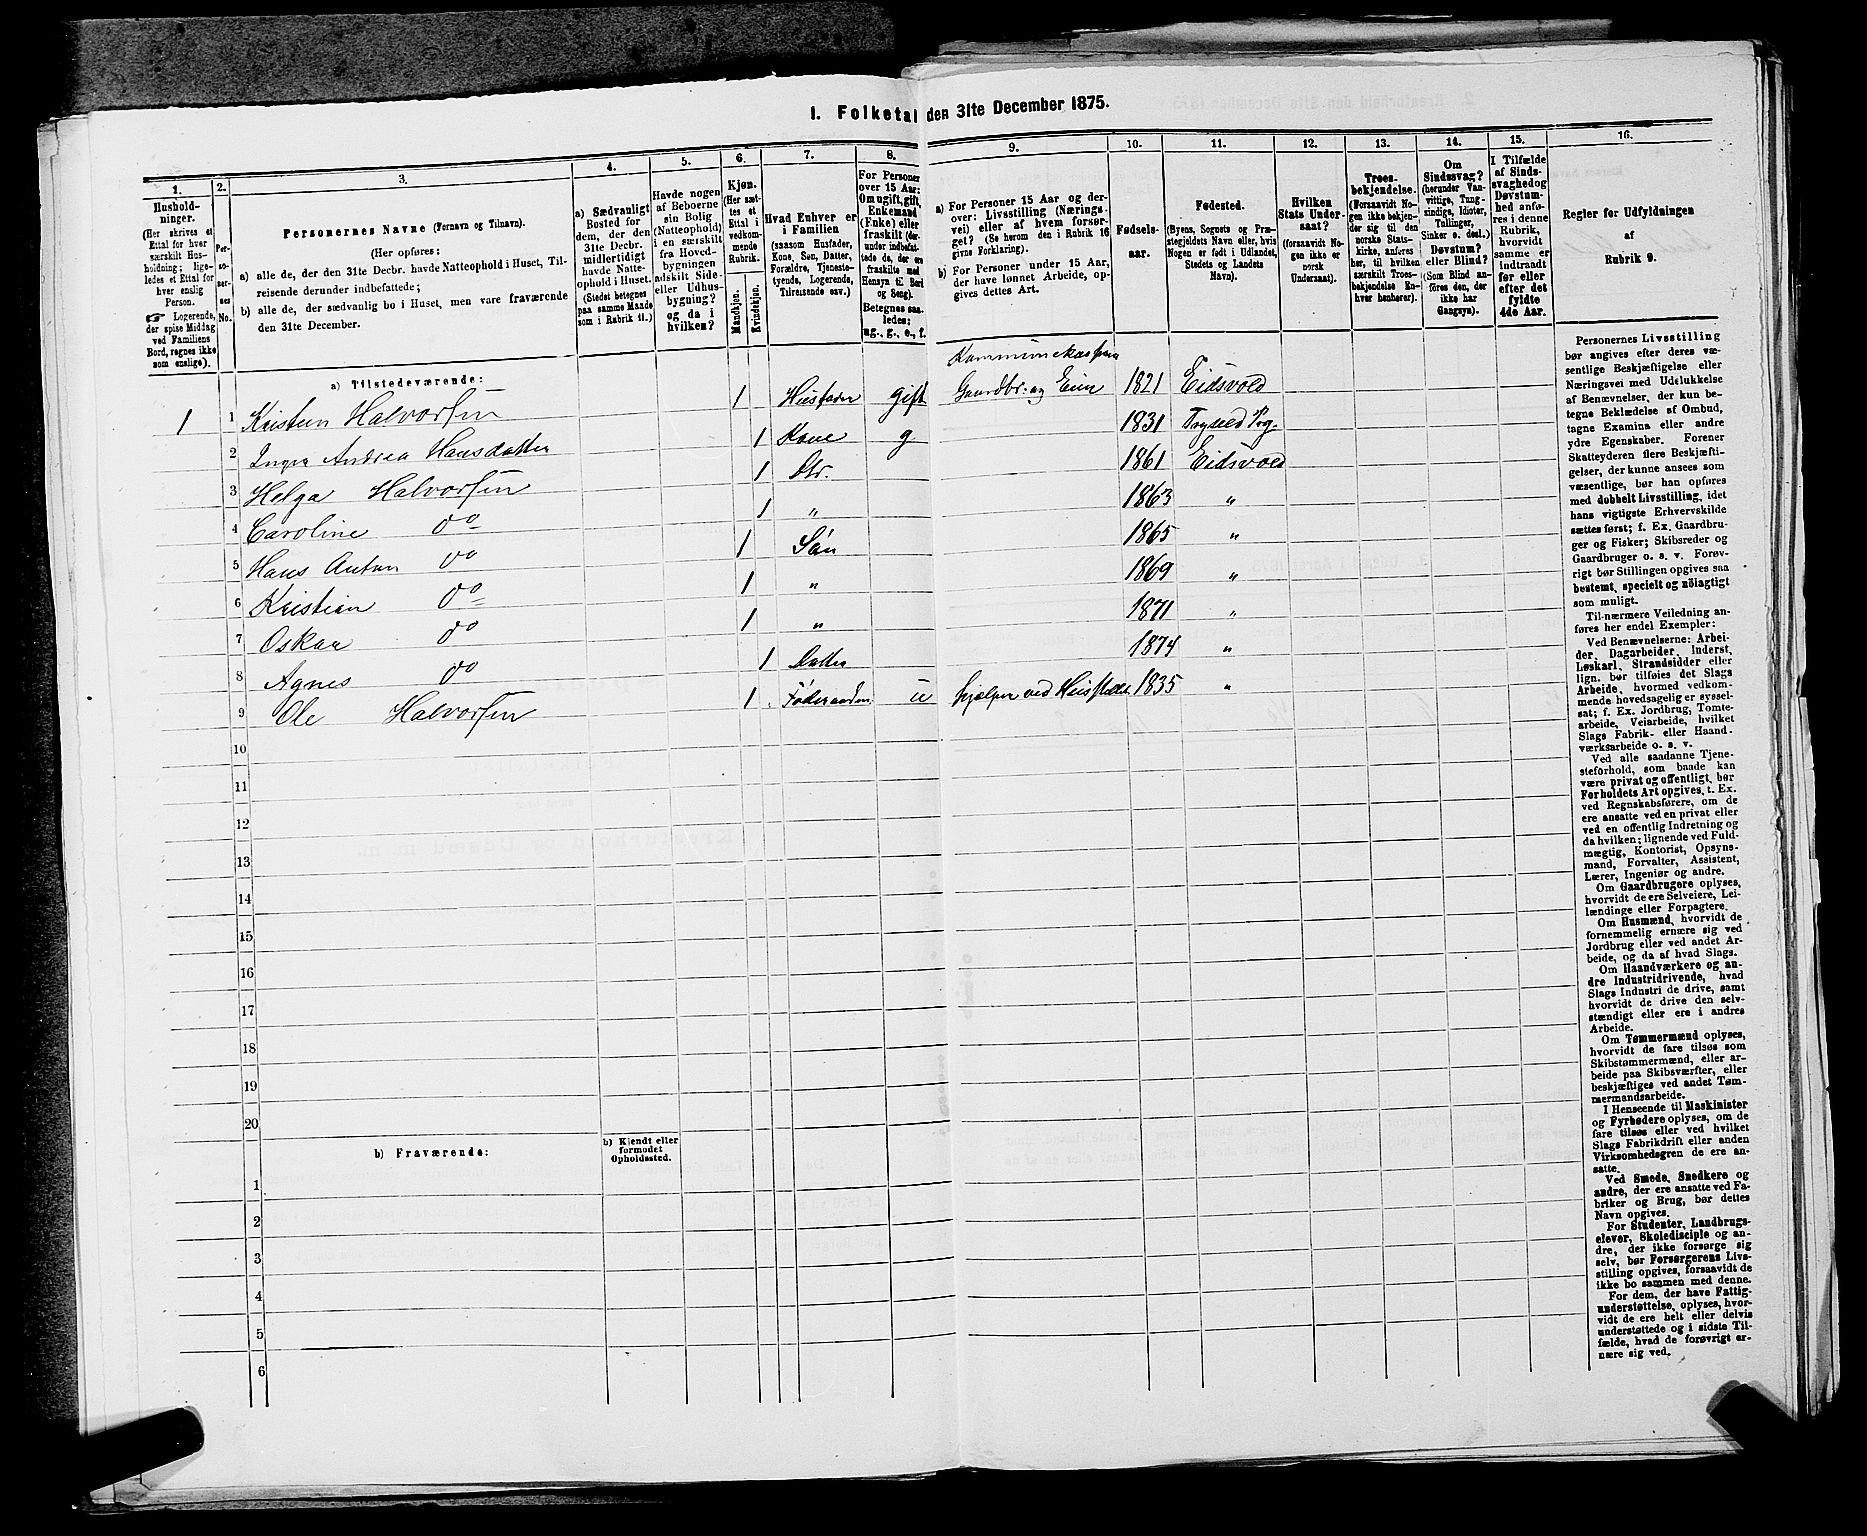 1. Folketal den 31te December 1875.
1.
2.
3.
4.
5.
6.
7.
8.
9.
10.
11.
12.
13.
14.
15.
16.
Hushold-
ninger.
(Her skrives et
Ettal for hver
særskilt Hus-
holdning; lige-
ledes et Ettal for
hver enslig
Person.
☞ Logerende,
der spise Middag
ved Familiens
Bord, regnes ikke
som enslige).
Per-
so-
ner-
nes
No.
Personernes Navne (Fornavn og Tilnavn).
(Her opføres:
a) alle de, der den 31te Decbr. havde Natteophold i Huset, Til-
reisende derunder indbefattede;
b) alle de, der sædvanlig bo i Huset, men vare fraværende
den 31te December.
a) Sædvanligt
Bosted for
dem, der den
31te Decbr.
midlertidigt
havde Natte-
ophold i Huset.
(Stedet betegnes
paa samme Maade
som i Rubrik 11.)
Havde nogen
af Beboerne
sin Bolig
(Natteophold)
i en særskilt
fra Hoved-
bygningen
adskilt Side-
eller Udhus-
bygning?
og da i
hvilken?
Kjøn.
(Her sæt-
tes et
Ettal i
vedkom-
mende
Rubrik.
Mandkjøn.
Kvindekjøn.
Hvad Enhver er
i Familien
(saasom Husfader,
Kone, Søn, Datter,
Forældre, Tjeneste-
tyende, Logerende,
Tilreisende osv.)
For Personer
over 15 Aar:
Om ugift, gift,
Enkemand
(Enke) eller
fraskilt (der-
under indbefat-
tede de, der ere
fraskilte med
Hensyn til Bord
og Seng).
Betegnes saa-
ledes:
ug., g., e., f.
a) For Personer 15 Aar og der-
over: Livsstilling (Nærings-
vei) eller af hvem forsør-
get? (Se herom den i Rubrik 16
givne Forklaring).
b) For Personer under 15 Aar,
der have lønnet Arbeide, op-
gives dettes Art.
Fødsels-
aar.
Fødested.
(Byens, Sognets og Præ-
stegjeldets Navn eller, hvis
Nogen er født i Udlandet,
Stedets og Landets
Navn).
Hvilken
Stats Under-
saat?
(forsaavidt No-
gen ikke er
norsk
Undersaat).
Troes-
bekjendelse.
(Forsaavidt No-
gen ikke bekjen-
der sig til den
norske Stats-
kirke, anføres
her, til hvilken
særskilt Troes-
bekjendelse En-
hver henhører).
Om
Sindssvag?
(herunder Van-
vittige, Tung-
sindige, Idioter,
Tullinger,
Sinker o. desl.)
Døvstum?
eller Blind?
(Som Blind an-
føres den, der
ikke har
Gangsyn).
I Tilfælde
af Sinds-
svaghed og
Døvstum-
hed anfø-
res i denne
Rubrik,
hvorvidt
samme er
indtraadt
før eller
efter det
fyldte
4de Aar.
Regler for Udfyldningen
af
Rubrik 9.
a) Tilstedeværende:
Kommunekasserer
1 1 Kristen Halvorsen 1 Husfader gift Gaardbr. og Eier 1821 Eidsvold
2 Inger Andrea Hansdatter 1 Kone g 1831 Trysild Pg.
3 Helga Halvorsen 1 Dtr. 1861 Eidsvold
4 Caroline do 1 " 1863 "
5 Hans Anton do 1 Søn 1865 "
6 Kristian do 1 " 1869 "
7 Oskar do 1 " 1871 "
8 Agnes do 1 Datter 1874 "
9 Ole Halvorsen 1 u hjælper ved 1835 "
10
11
12
13
14
15
16
17
18
19
20
b) Fraværende:
b) Kjendt eller
formodet
Opholdssted.
1
2
3
4
5
6
Personernes Livsstilling
bør angives efter deres væ-
sentlige Beskjæftigelse eller
Næringsvei med Udelukkelse
af Benævnelser, der kun be-
tegne Beklædelse af Ombud,
tagne Examina eller andre
ydre Egenskaber. Forener
Skatteyderen flere Beskjæfti-
gelser, der kunne ansees som
væsentlige, bør han opføres
med dobbelt Livsstilling, idet
hans vigtigste Erhvervskilde
sættes først; f. Ex. Gaardbru-
ger og Fisker; Skibsreder og
Gaardbruger o. s. v. Forøv-
rigt bør Stillingen opgives saa
bestemt, specielt og nøiagtigt
som muligt.
Til nærmere Veiledning an-
føres her endel Exempler:
Ved Benævnelserne: Arbei-
der, Dagarbeider, Inderst,
Løskarl, Strandsidder eller
lign. bør tilføies det Slags
Arbeide, hvormed vedkom-
mende hovedsagelig er syssel-
sat; f. Ex. Jordbrug, Tomte-
arbeide, Veiarbeide, hvilket
Slags Fabrik- eller Haand-
værksarbeide o. s. v.
Ved alle saadanne Tjene-
steforhold, som baade kan
være privat og offentligt, bør
Forholdets Art opgives, t. Ex.
ved Regnskabsførere, om de
ere ansatte ved en privat eller
ved en offentlig Indretning og
da hvilken; lignende ved Fuld-
mægtig, Kontorist, Opsyns-
mand, Forvalter, Assistent,
Lærer, Ingeniør og andre.
Om Gaardbrugere oplyses,
hvorvidt de ere Selveiere, Lei-
lændinge eller Forpagtere.
Om Husmænd, hvorvidt de
fornemmelig ernære sig ved
Jordbrug eller ved andet Ar-
beide, og da af hvad Slags.
Om Haandværkere og an-
dre Industridrivende, hvad
Slags Industri de drive, samt
hvorvidt de drive den selv-
stændigt eller ere i andres
Arbeide.
Om Tømmermænd oplyses,
hvorvidt de fare tilsøs som
Skibstømmermænd, eller ar-
beide paa Skibsværfter, eller
beskjæftiges ved andet Tøm-
mermandsarbeide.
I Henseende til Maskinister
og Fyrbødere oplyses, om de
fare tilsøs eller ved hvilket
Slags Fabrikdrift eller anden
Virksomhedsgren de ere an-
satte.
Ved Smede, Snedkere og
andre, der ere ansatte ved Fa-
briker og Brug, bør dettes
Navn opgives.
For Studenter, Landbrugs-
elever, Skoledisciple og an-
dre, der ikke forsørge sig
selv, bør Forsørgerens Livs-
stilling opgives, forsaavidt de
ikke bo sammen med denne.
For dem, der have Fattig-
understøttelse, oplyses, hvor-
vidt de ere helt eller delvis
understøttede og i sidste Til-
fælde, hvad de forøvrigt er-
nære sig ved.